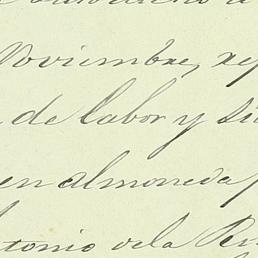 Noviembre, re
de labor y si
en almoneda
tonio de la Re